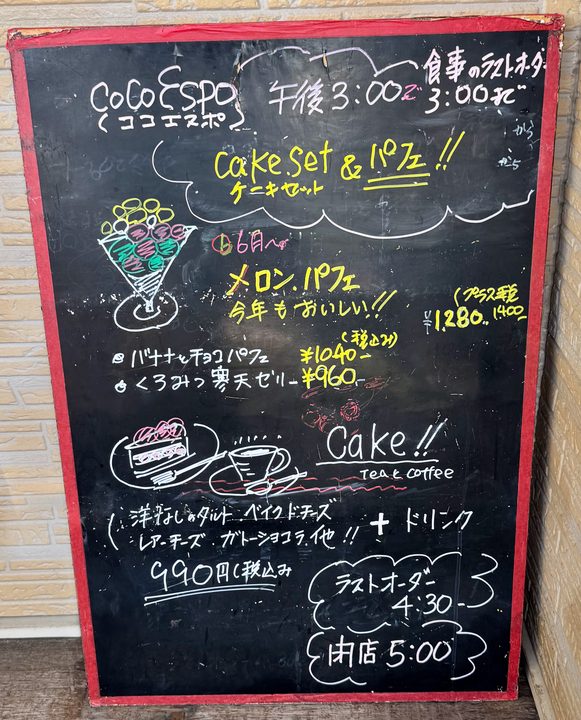 食事のラストオーダー
CoCo Espo 午後3:00まで 3:00まで
(ココエスポ)
から
から
Cake Set & パフェ!!
ケーキセット
6月〜
メロン.パフェ
今年もおいしい!!
(プラス税
¥1,280.. 1400-
(税込み)
バナナとチョコパフェ ¥1040-
くろみつ寒天ゼリー ¥960-
Cake!!
Tea & Coffee
(洋なしのタルト.ベイクドチーズ
レアーチーズ ガトーショコラ.他!! + ドリンク
990円(税込み
ラストオーダー
4:30-
閉店 5:00